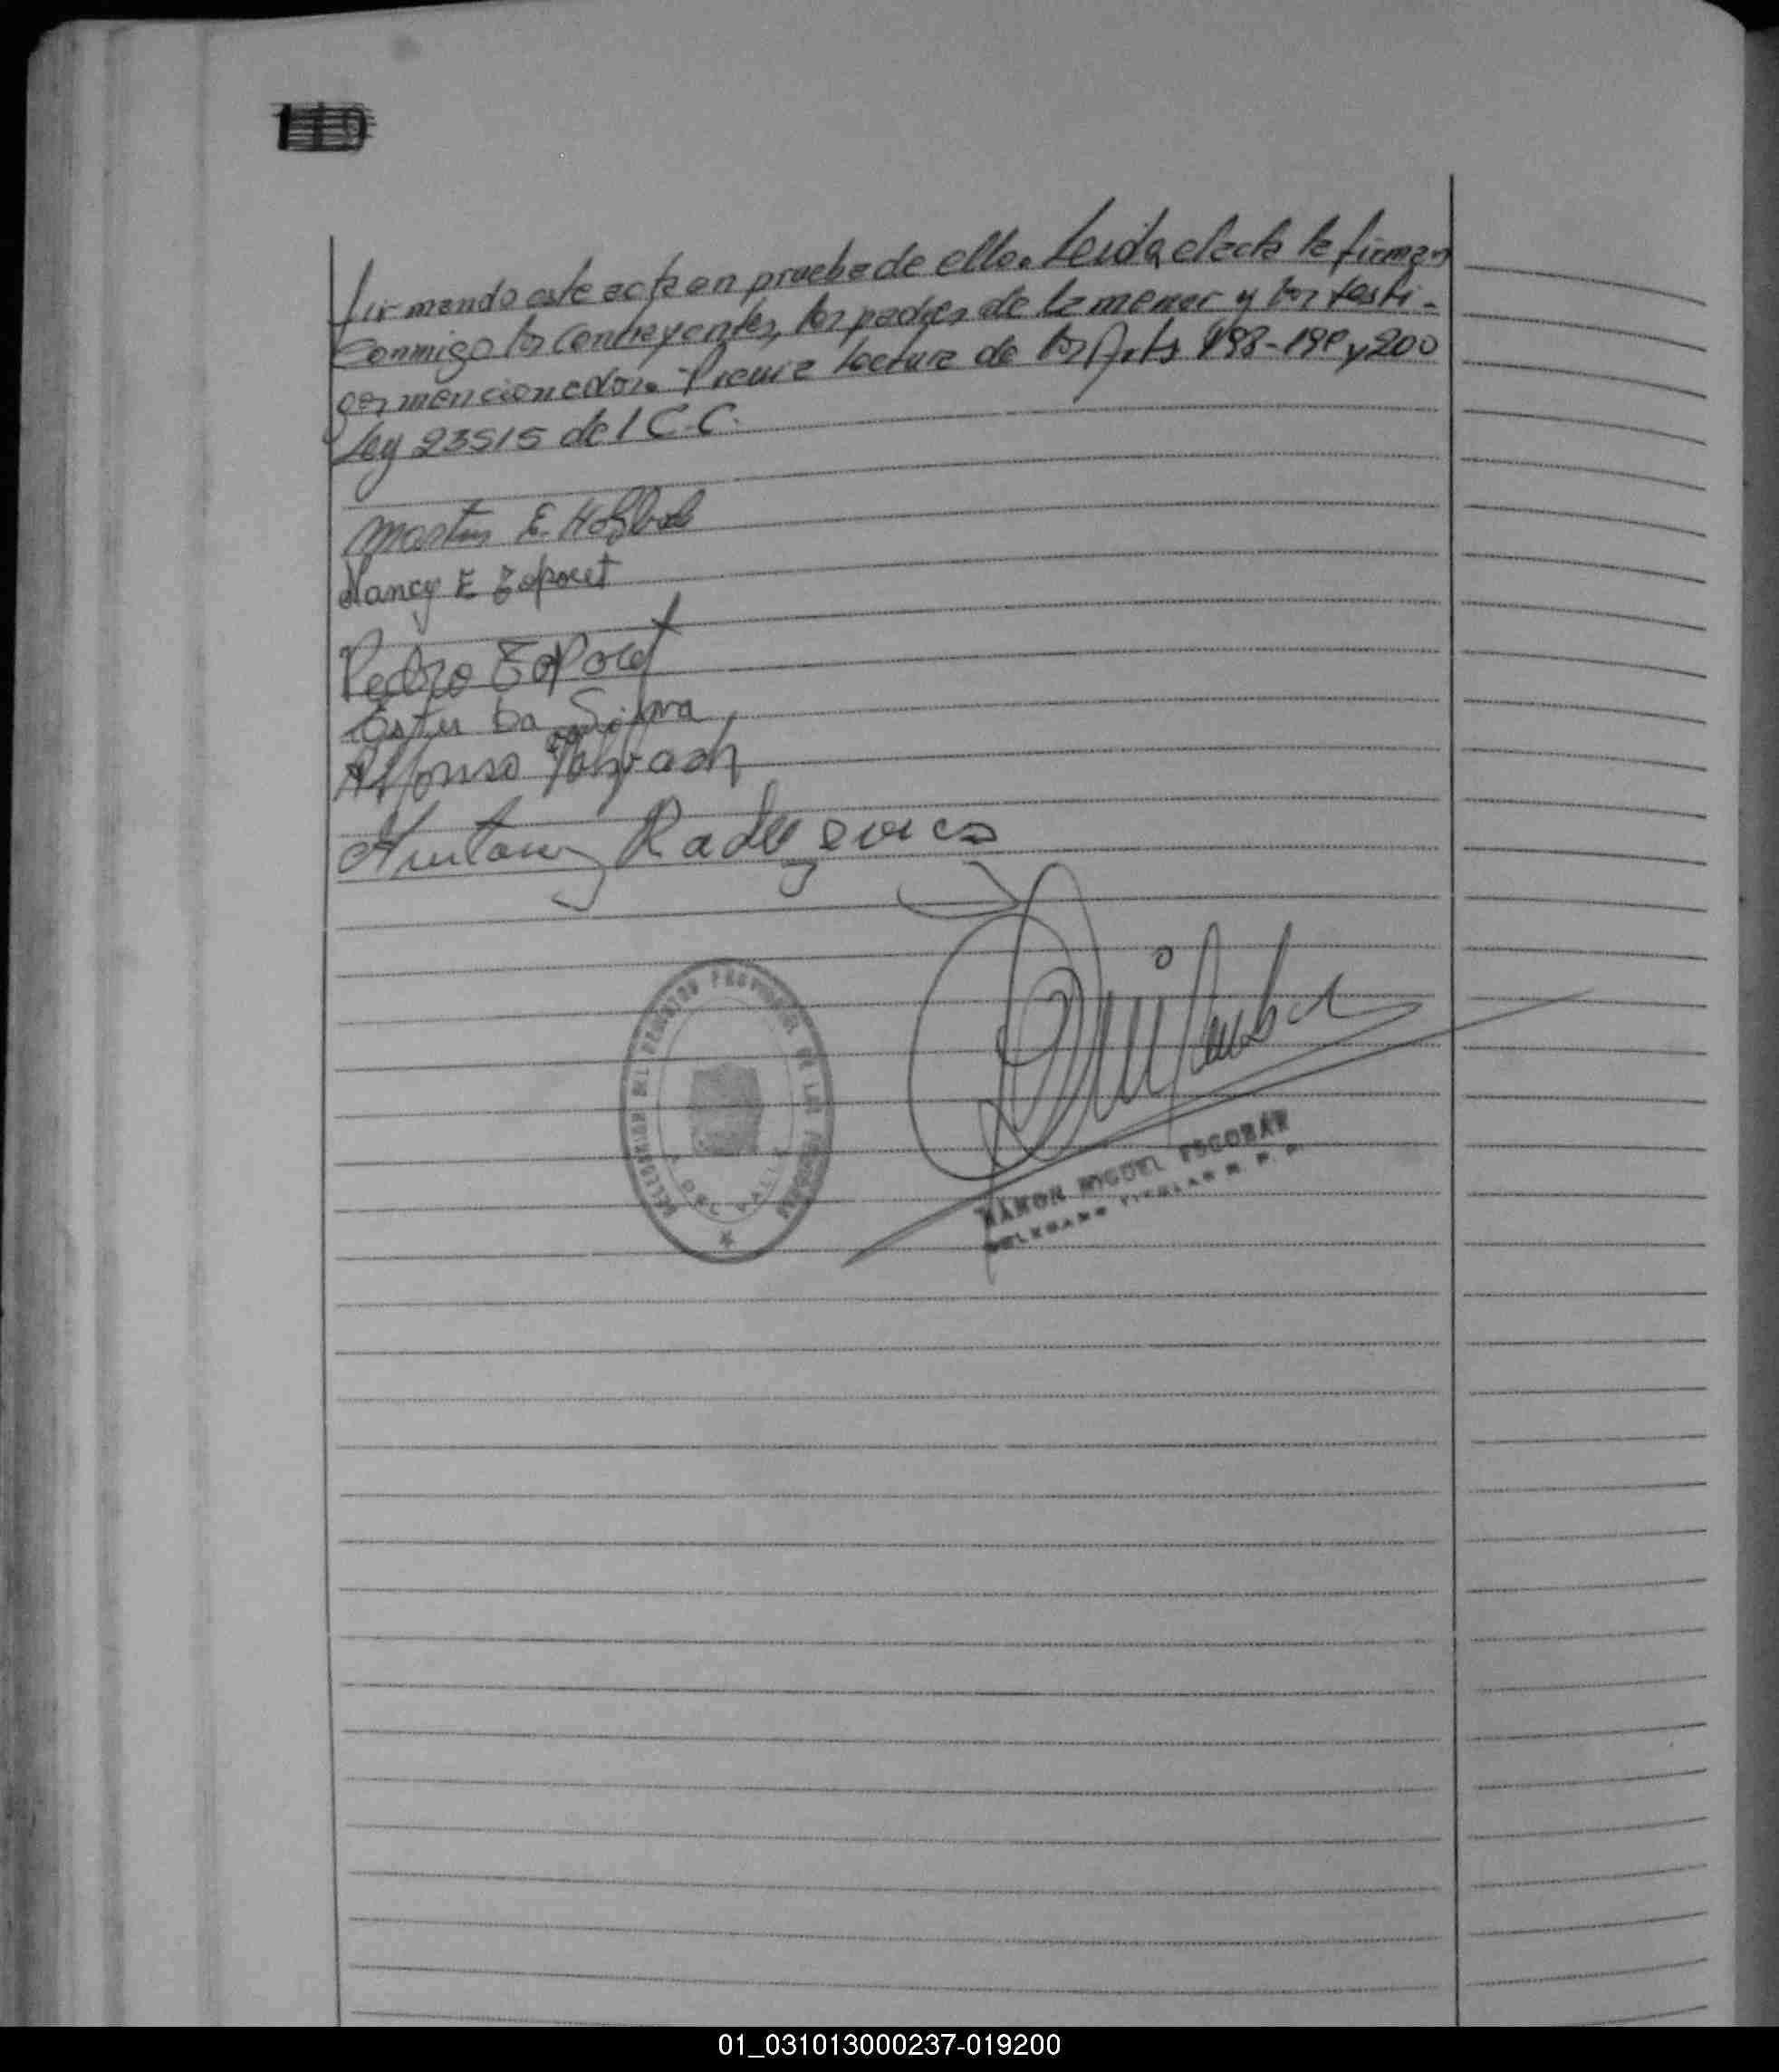 110
firmando este acta en prueba de ello. Leida el acta la firman
conmigo los contrayentes, los padres de la menor y los testi-
gos mencionados. Previa lectura de los Arts 198-199 y 200
Ley 23515 del C.C.
Martin E. Holzbach
Nancy E Toporet
Pedro Toporet
Ester Da Silva
Alfonso Holzbach
Radzevics
DELEGACION DEL REGISTRO PROVINCIAL DE LAS PERSONAS
RAMON MIGUEL ESCOBAR
DELEGADO TITULAR R. P. P.
01_031013000237-019200